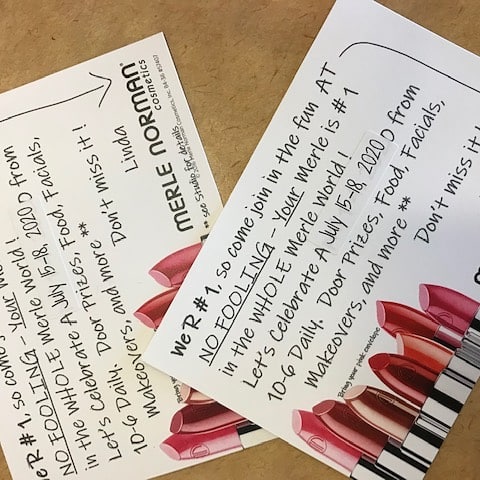 We R #1, so come join in the fun AT
NO FOOLING - Your Merle is #1
in the WHOLE Merle World!
Let's Celebrate A July 15-18, 2020 from
10-6 Daily. Door Prizes, Food, Facials,
Makeovers, and more **
Don't miss it
Bring your pink envelope
We R #1, so come
NO FOOLING - Your Me
in the WHOLE Merle World!
Let's Celebrate A July 15-18, 2020 from
10-6 Daily. Door Prizes, Food, Facials,
Makeovers, and more **
Don't miss it!
Linda
** see Studio for details
MERLE NORMAN
cosmetics
Bring your